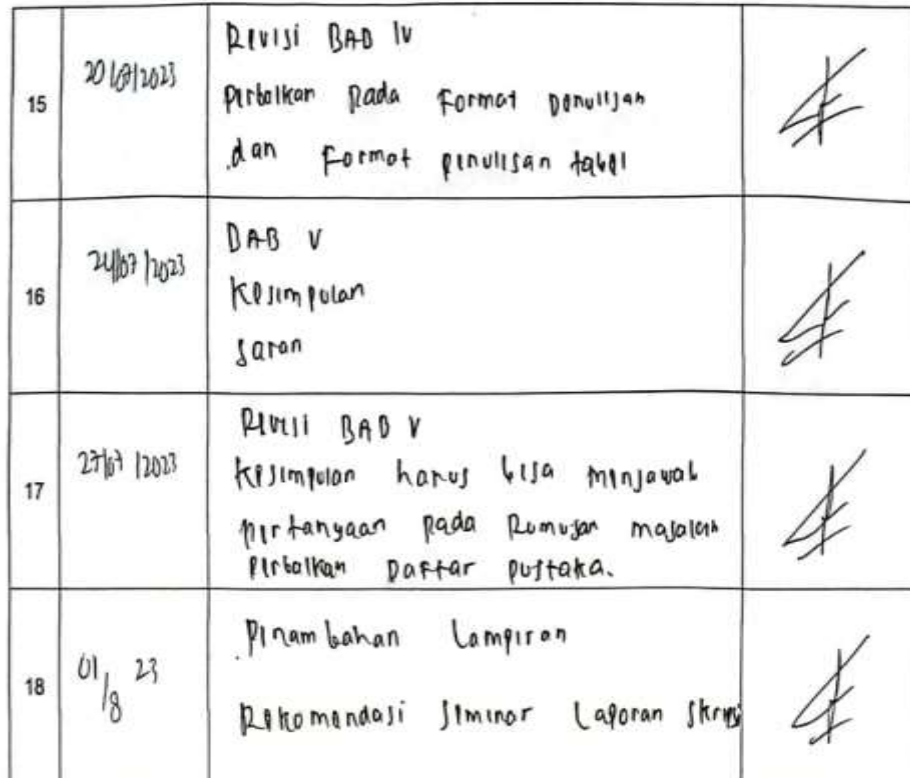 15
20/07/2023
Revisi BAB IV
Perbaikan Pada Format Penulisan
dan Format penulisan tabel
16
24/07/2023
BAB V
Kesimpulan
Saran
17
27/07/2023
Revisi BAB V
Kesimpulan harus bisa menjawab
pertanyaan pada Rumusan masalah
Perbaikan Daftar pustaka.
18
01/8 23
Penambahan Lampiran
Rekomendasi Seminar Laporan Skripsi